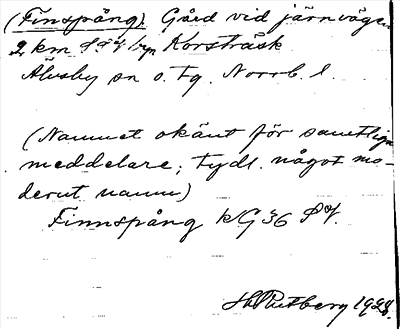 (Finspång). Gård vid järnvägen
2 km byn Korsträsk
Älvsby sn o. tg. Norrb. l.
(Namnet okänt för samtliga
meddelare; tydl. något mo-
dernt namn)
Finnspång kG36
H. Rutberg 1928.